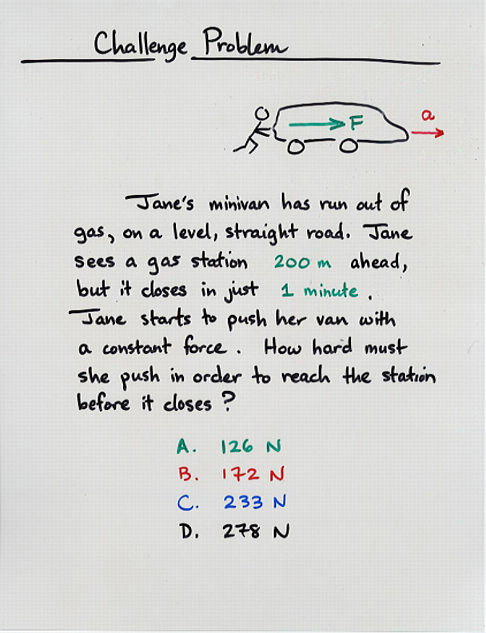 Challenge Problem
F
a
Jane's minivan has run out of
gas, on a level, straight road. Jane
sees a gas station 200 m ahead,
but it closes in just 1 minute.
Jane starts to push her van with
a constant force. How hard must
she push in order to reach the station
before it closes?
A. 126 N
B. 172 N
C. 233 N
D. 278 N